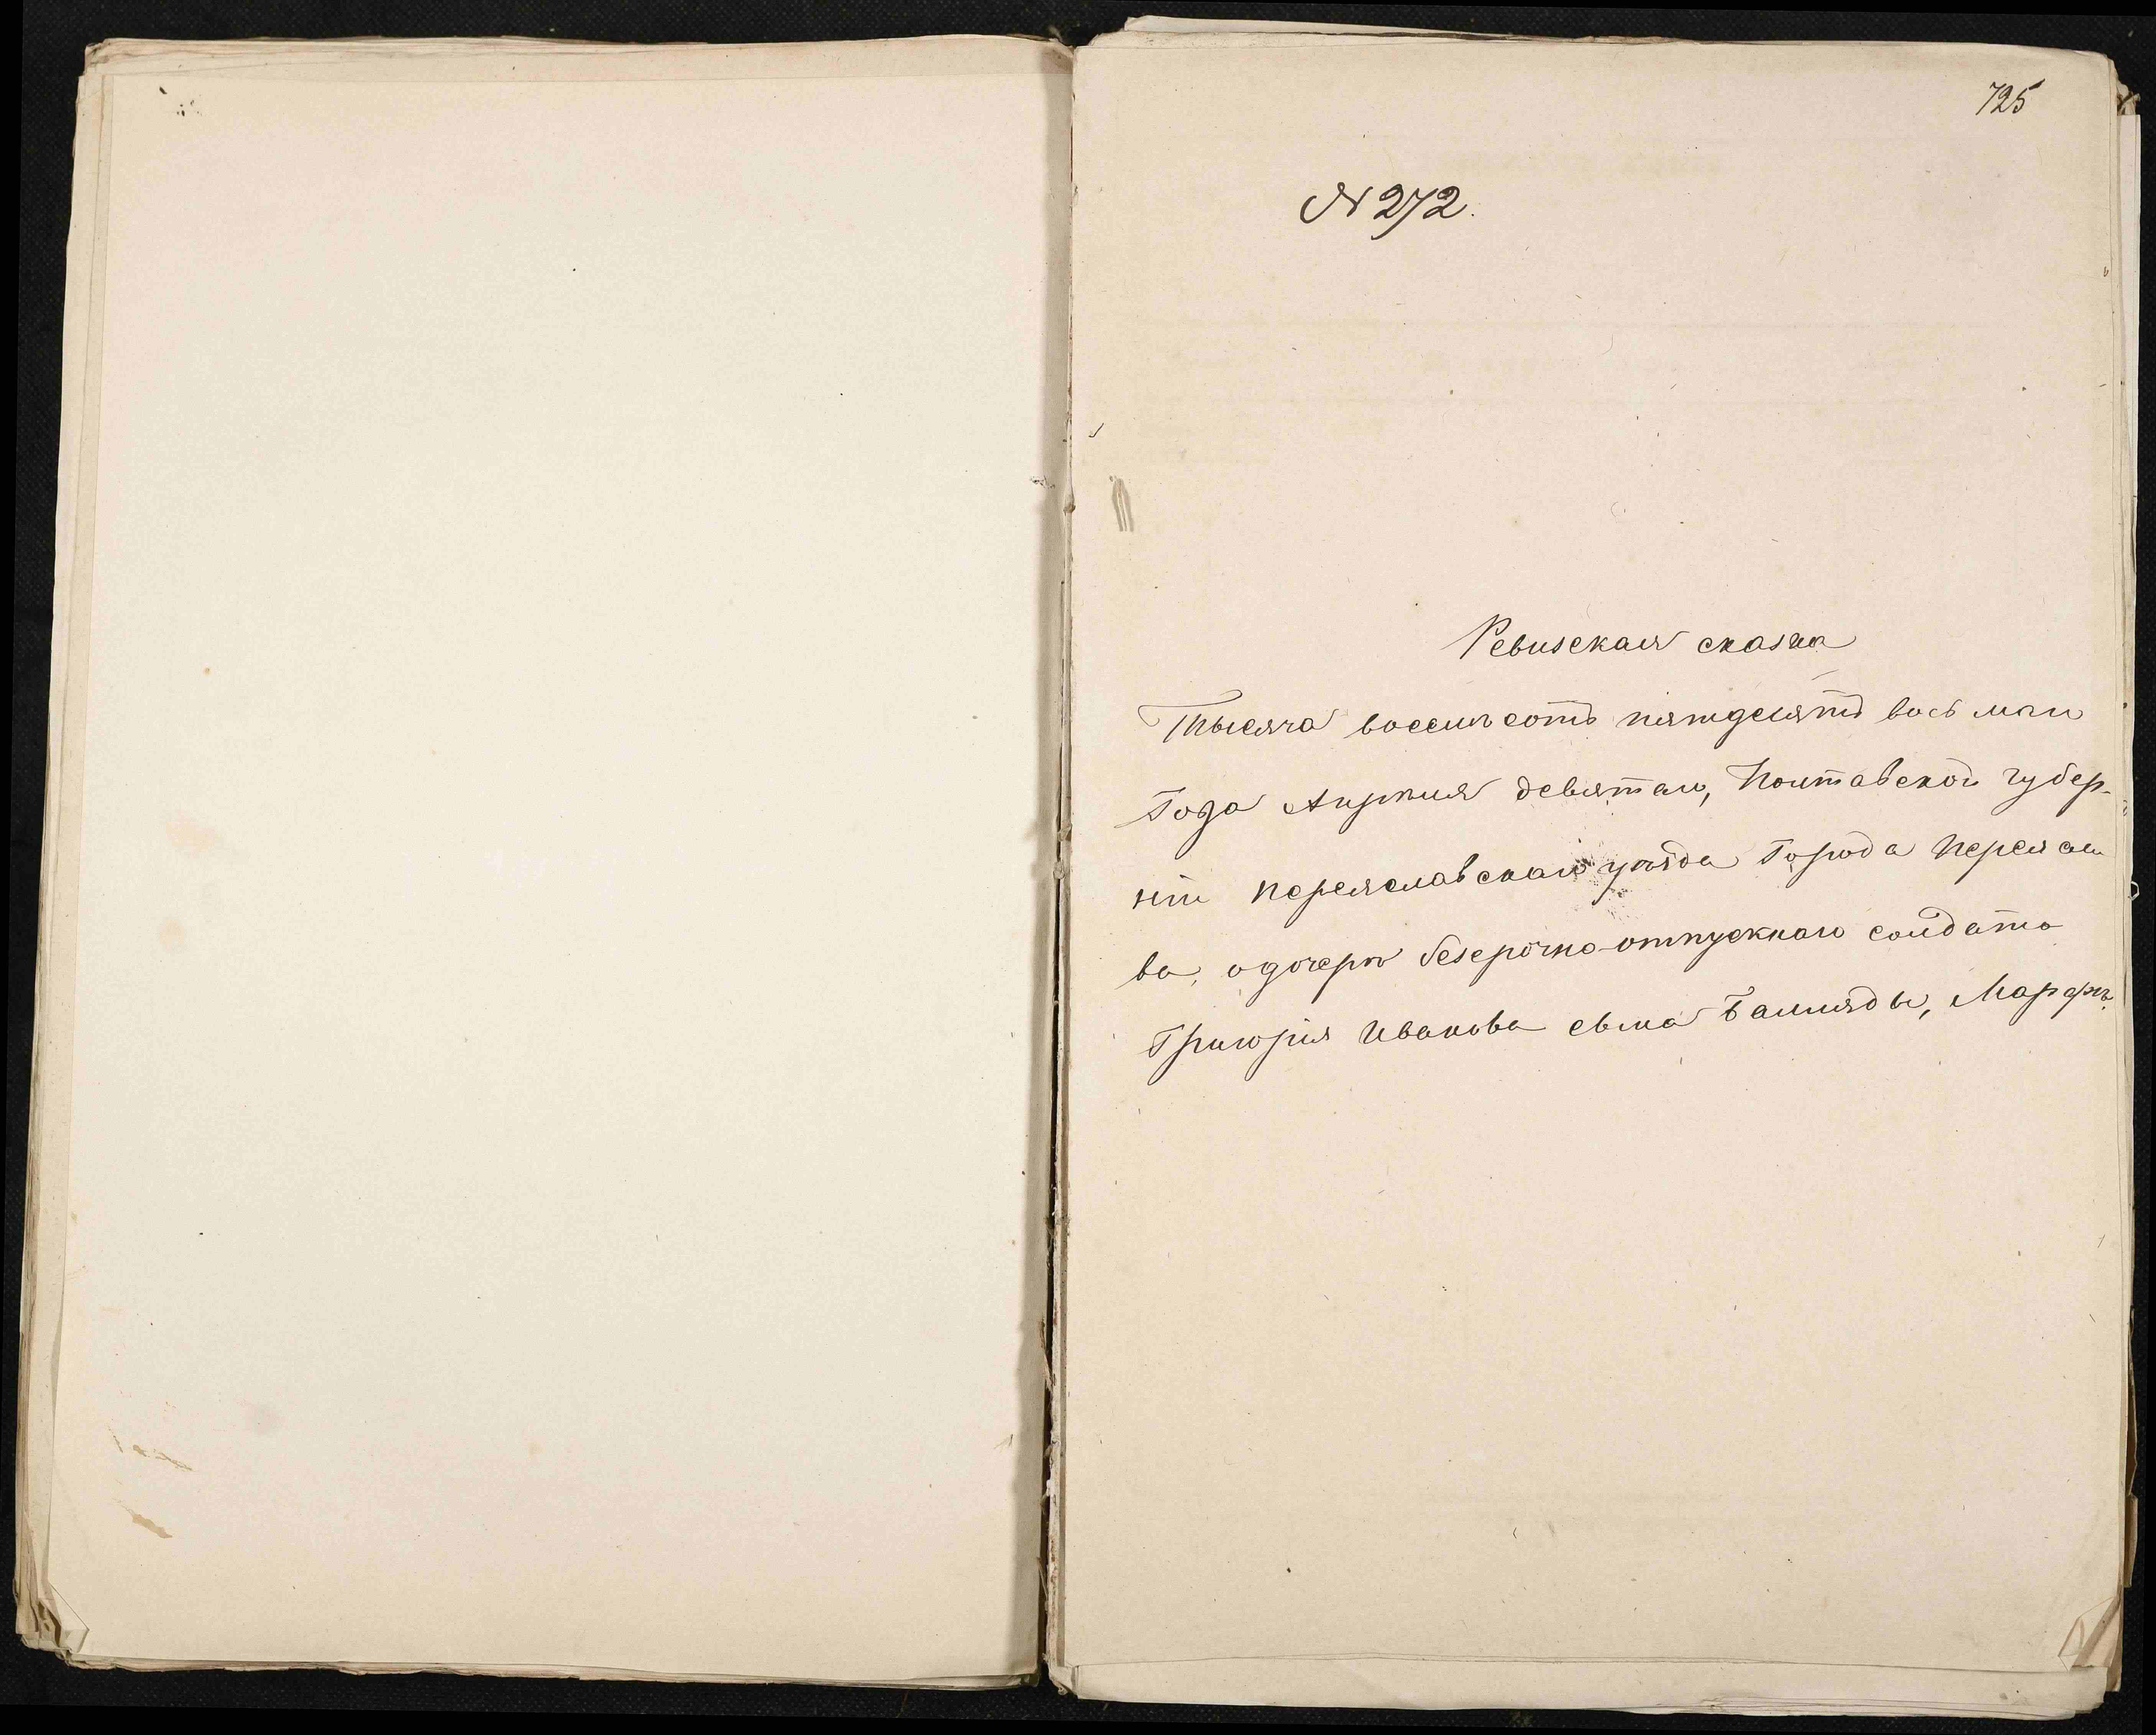 725
№ 272.
Ревизская сказка
Тысяча восемьсотъ пятдесятъ восьмаго
Года Апреля девятаго, Полтавской губер-
ніи Переяславскаго уѣзда Города Переясла
ва, о дочери безсрочно-отпускнаго солдата
Григорія Иванова сына Баллады, Марфѣ.